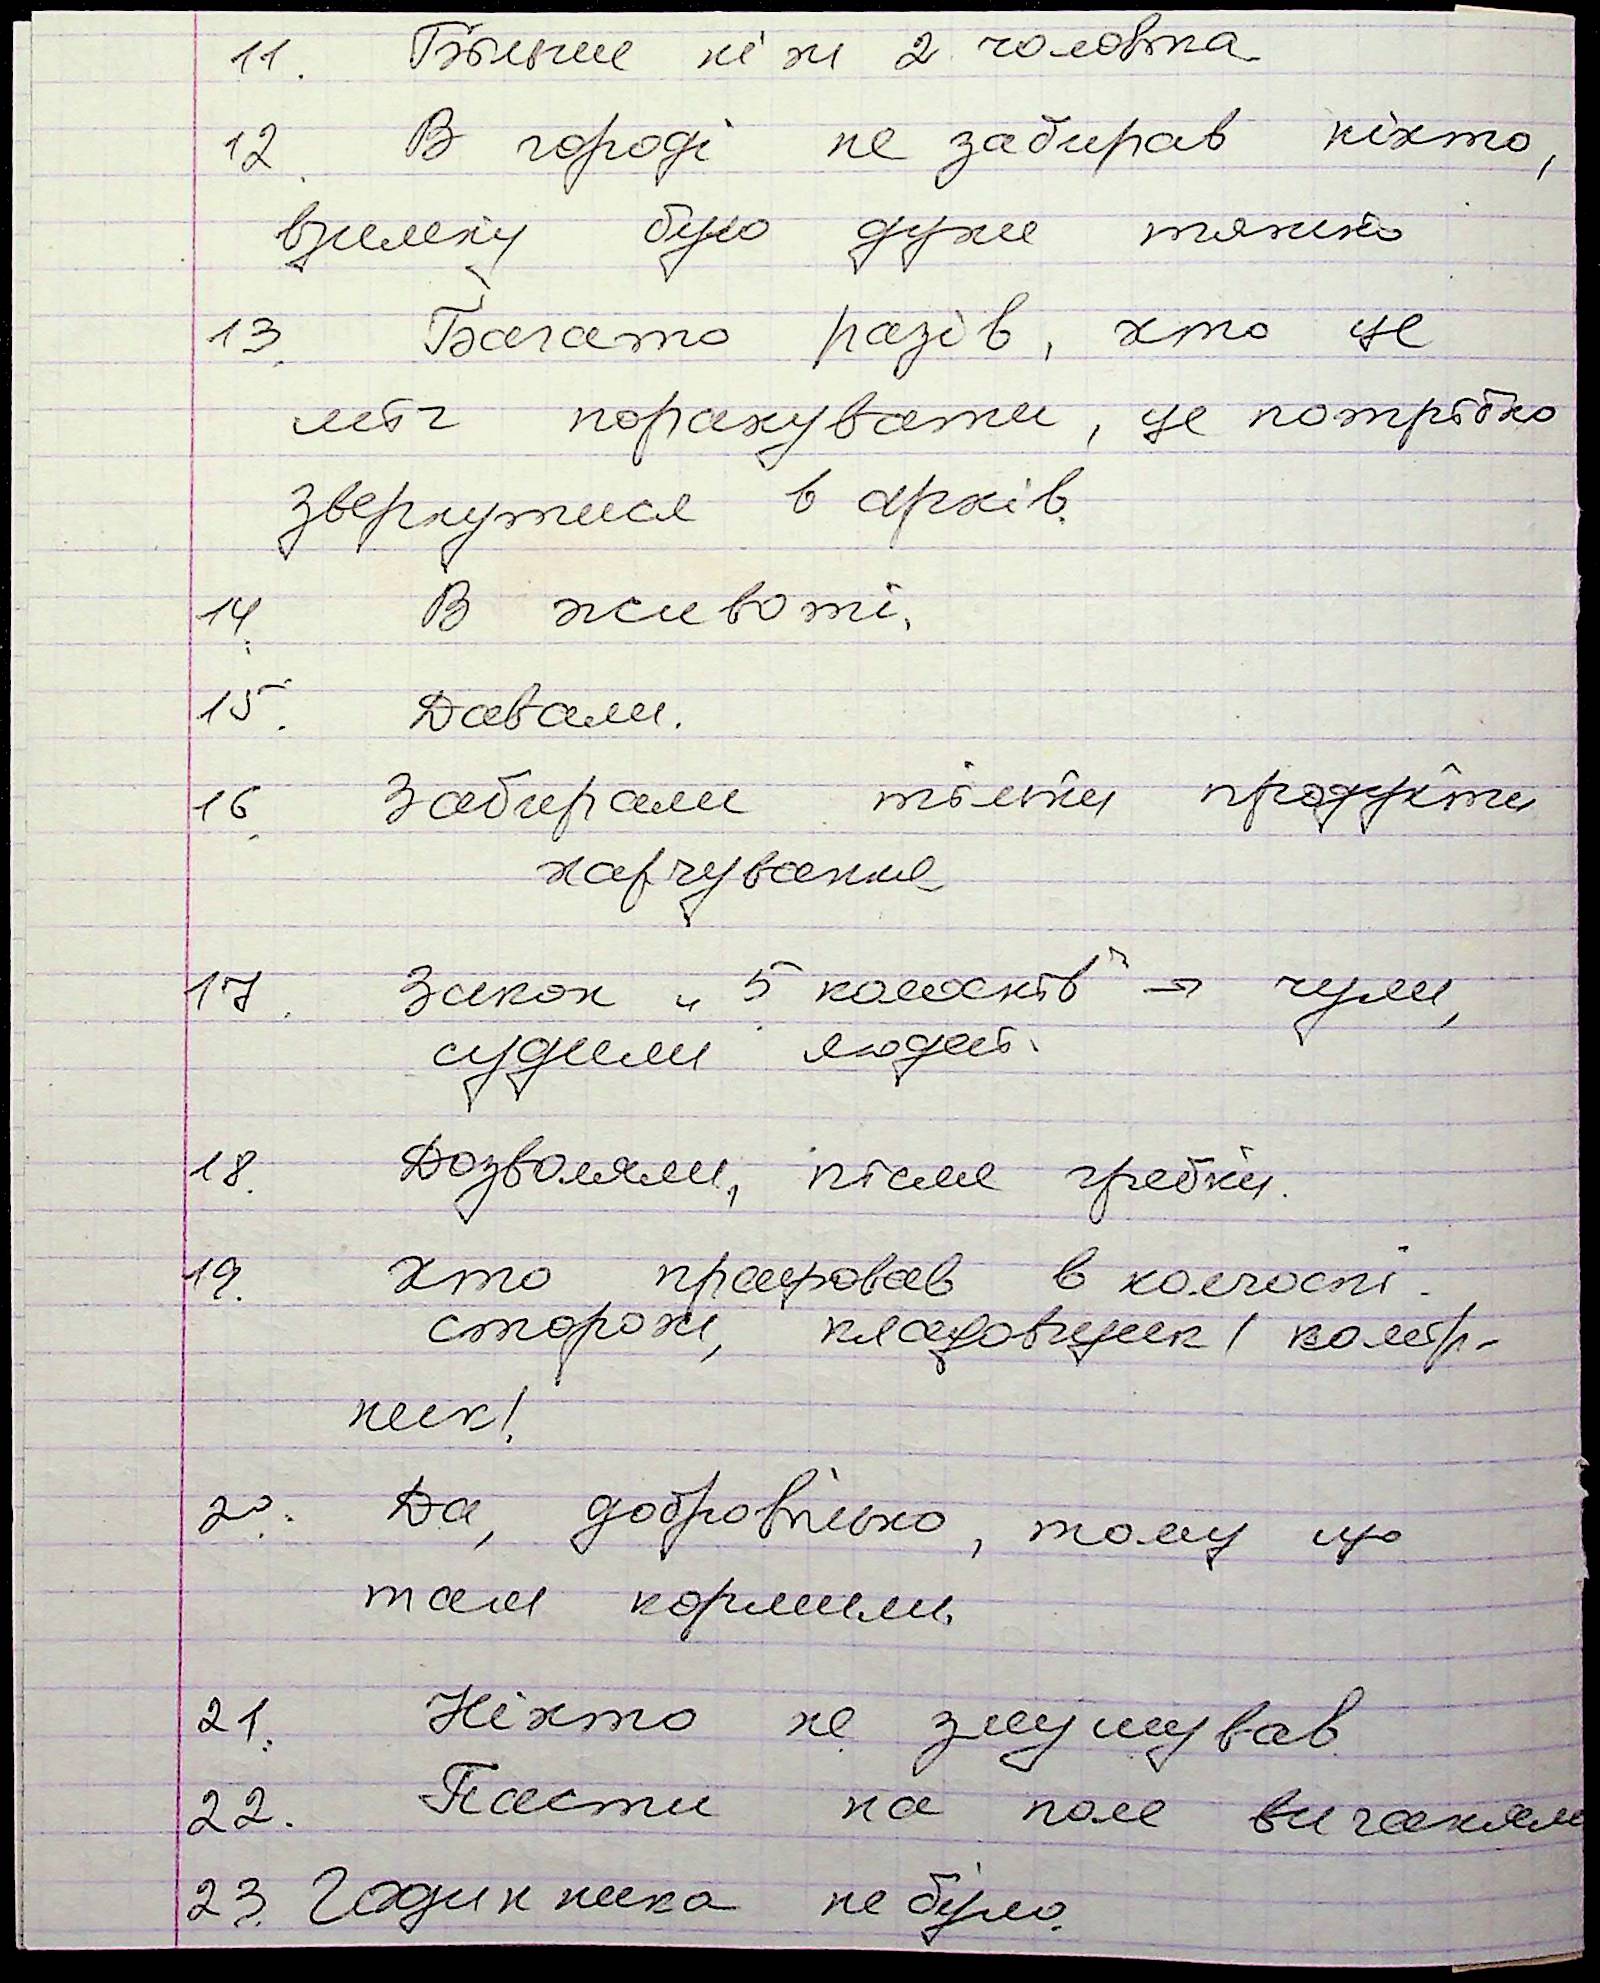 11. Більше ніж 2 чоловіка
12. В городі не забирав ніхто,
взимку було дуже тяжко
13. Багато разів, хто це
міг порахувати, це потрібно
звернутися в архів.
14. В животі.
15. Давали.
16. Забирали тільки продукти
харчування
17. Закон „5 колосків" – чули,
судили людей.
18. Дозволяли, після гребки.
19. Хто працював в колгоспі.
сторож, кладовщик / комір-
ник!
20. Да, добровільно, тому що
там кормили.
21. Ніхто не змушував.
22. Пасти на поле виганяли
23. Годинника не було.